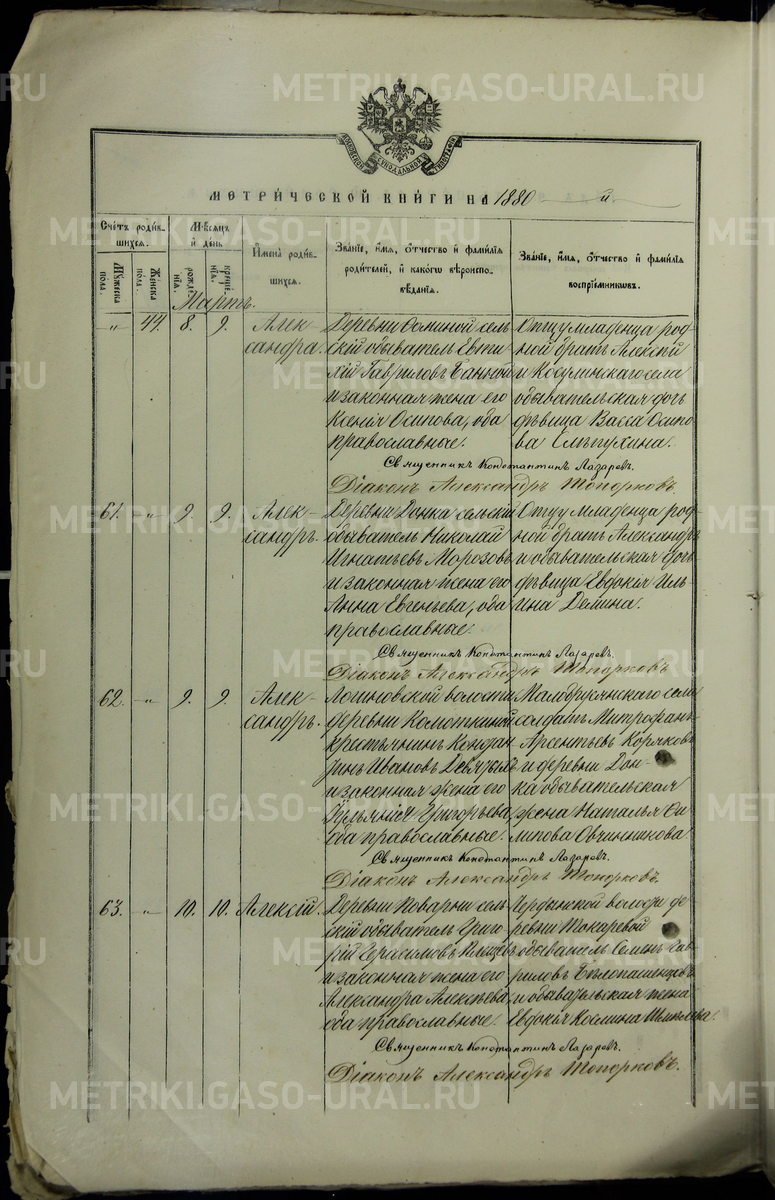 METRIKI.GASO-URAL.RU
МЕТРИ́ЧЕСКОЙ КНИ́ГИ НА 1880 й
Счетъ роди́вшихся.
Мѣсяцъ и день
Имена роди́вшихся.
Зва́ніе, и́мя, о́тчество и фами́лія родителей, и како́гω вѣроисповѣданія.
Зва́ніе, и́мя, о́тчество и фами́лія воспріе́мникωвъ.
Мꙋжеска пола.
Женска пола.
рожденія.
крещенія.
Мартъ.
„ 44. 8. 9. Александра.
Деревни Осминой сель
скій обыватель Евти
хій Гавриловъ Банной
и законная жена его
Ксенія Осипова, оба
православные.
Отцу младенца род
ной братъ Алексѣй
и Косулинскаго села
обывательская дочь
дѣвица Васса Осипо
ва
Священникъ Константинъ Лазаревъ.
Діаконъ Александръ Топорковъ.
61. „ 9. 9. Александръ.
Деревни сельскій
обыватель Николай
Игнатьевъ Морозовъ
и законная жена его
Анна Евгеньева, оба
православные.
Отцу младенца род
ной братъ Александръ
и обывательская дочь
дѣвица Евдокія Иль
ина Демина.
Священникъ Константинъ Лазаревъ.
Діаконъ Александръ Топорковъ
62. „ 9. 9. Александръ.
Логиновской волости
деревни
крестьянинъ
Ивановъ
и законная жена его
Григорьева,
оба православные.
Малобрусянскаго села
солдатъ Митрофанъ
Арсентьевъ Коряковъ
и деревни
обывательская
жена Наталья Фи
липова Овчинникова
Священникъ Константинъ Лазаревъ.
Діаконъ Александръ Топорковъ.
63. „ 10. 10. Алексій.
Деревни сель
скій обыватель Григо
рій Герасимовъ
и законная жена его
Александра Алексѣева,
оба православные.
волости де
ревни Токаревой
обыватель Семенъ Гав
риловъ Бѣлопашенцевъ
и обывательская жена
Евдокія Космина
Священникъ Константинъ Лазаревъ.
Діаконъ Александръ Топорковъ.